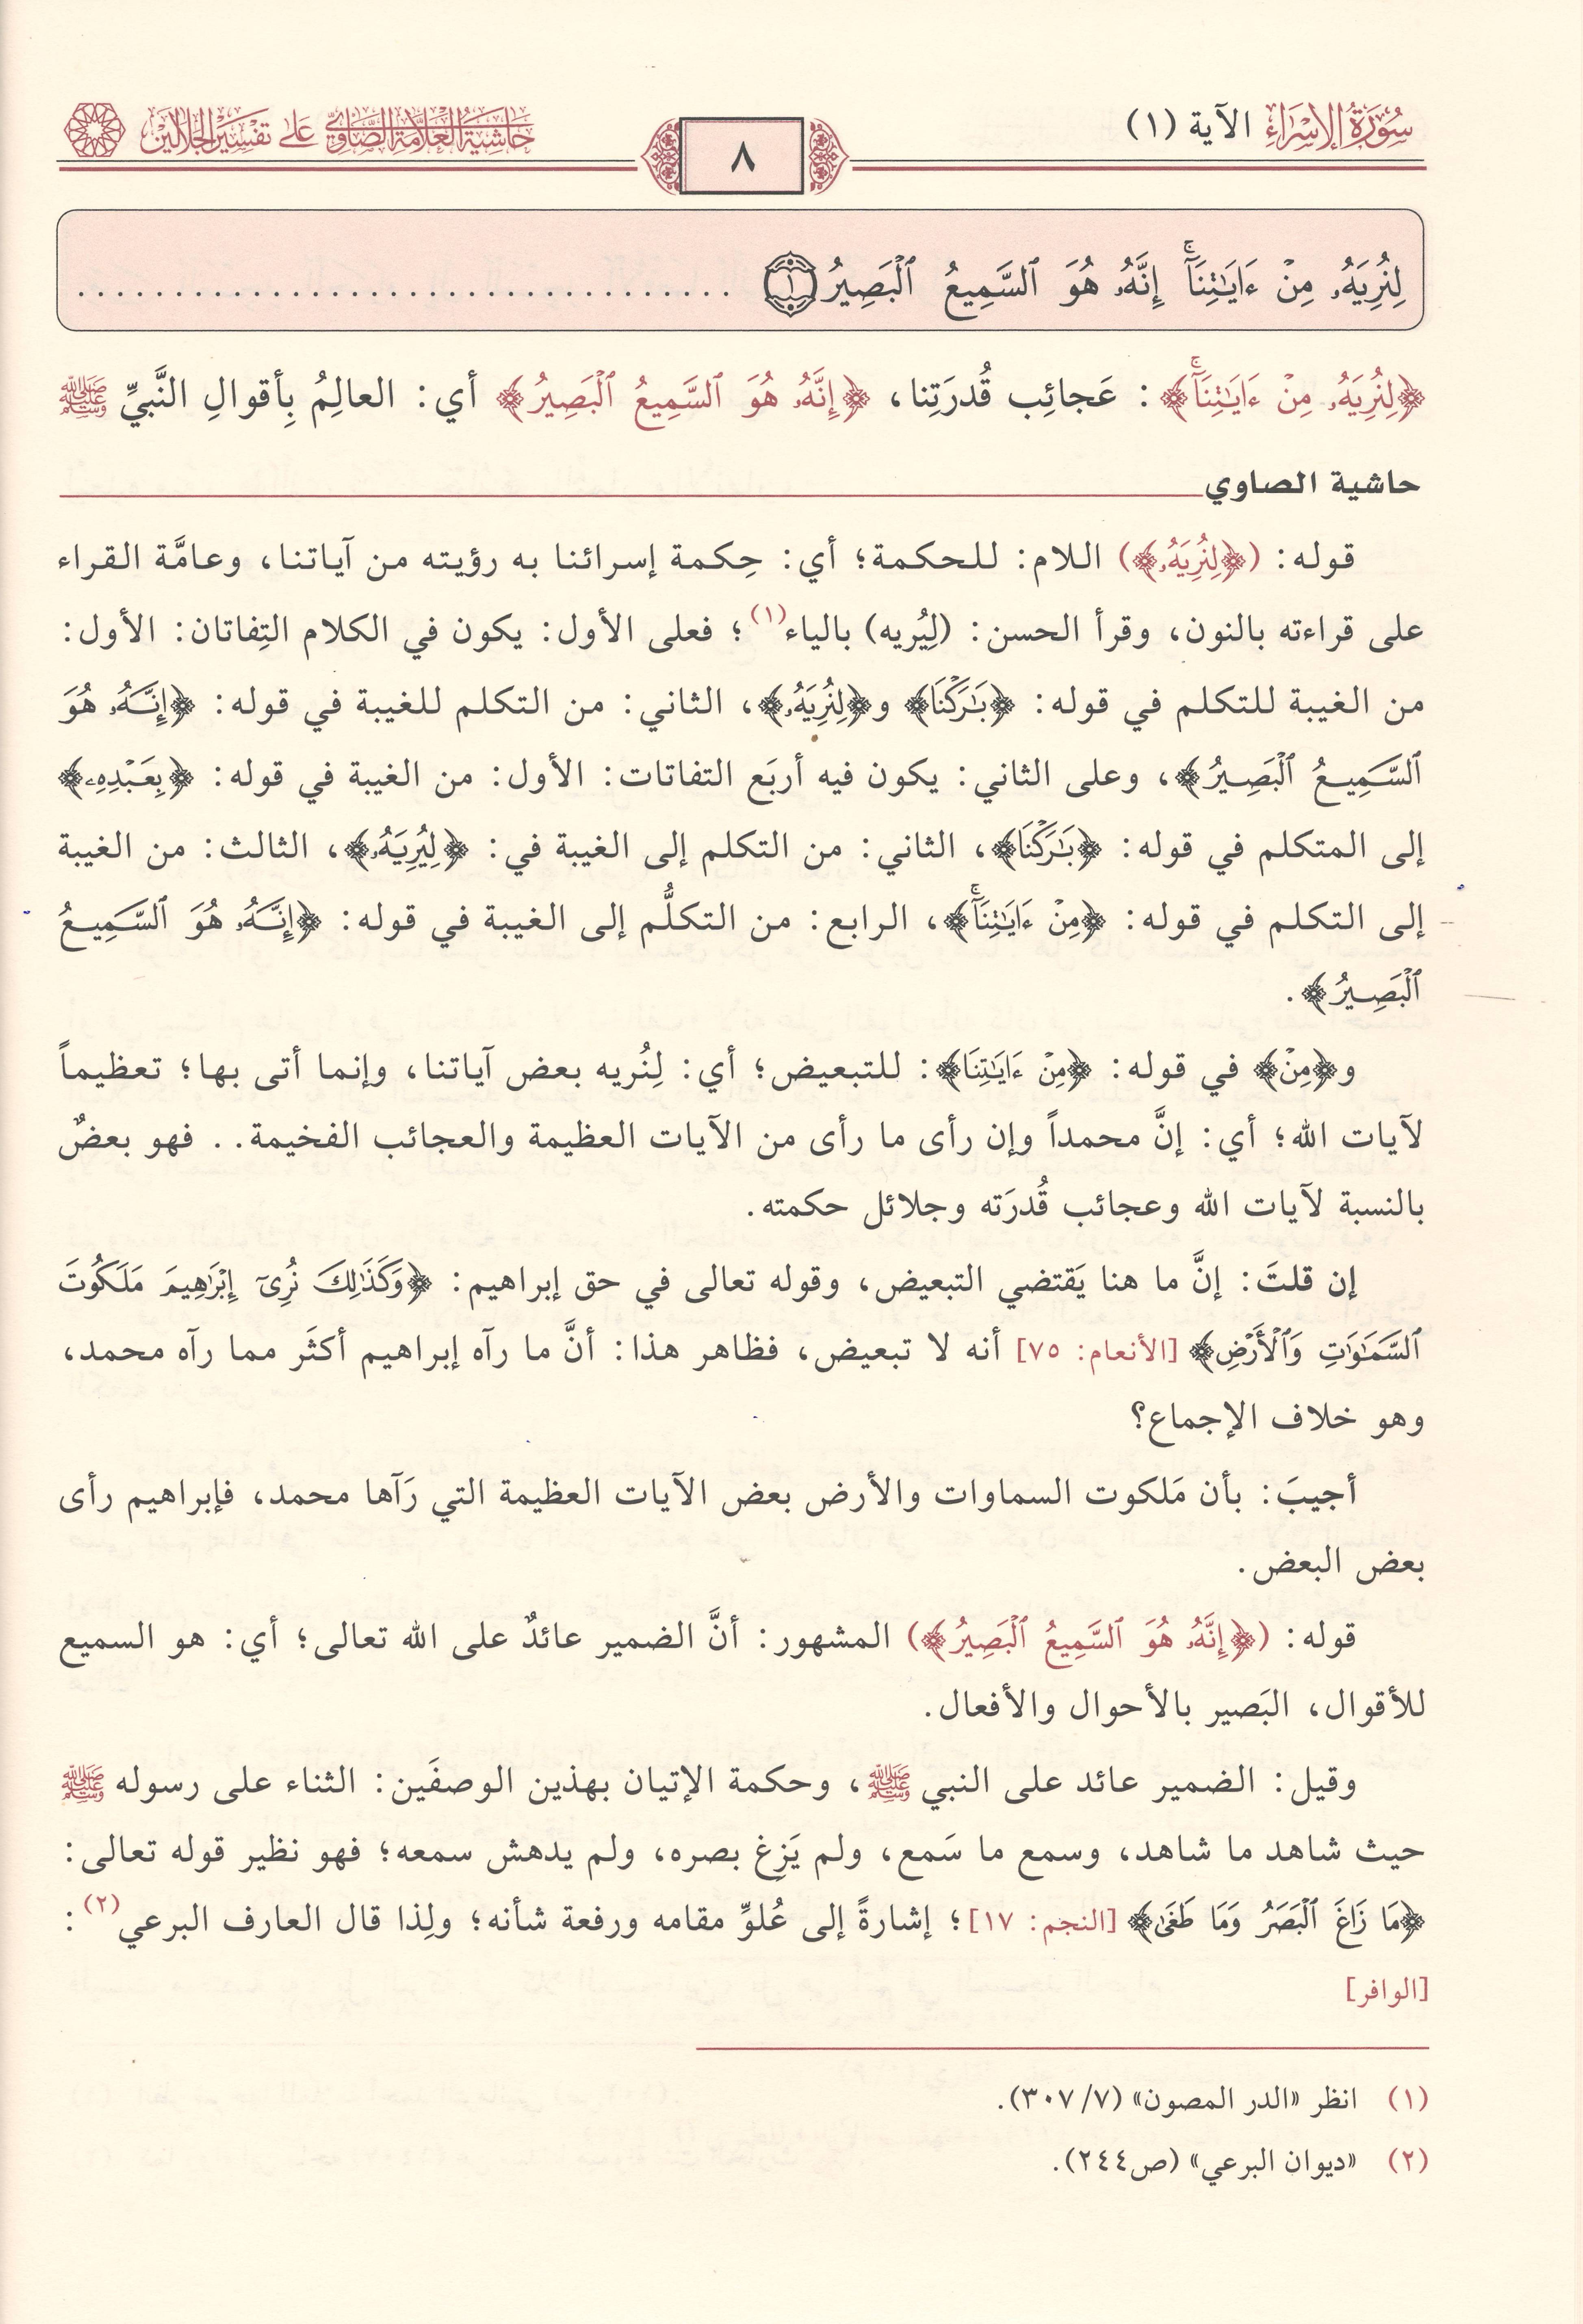 سُورَةُ الإِسْرَاءِ الآية (١)
٨
حَاشِيَةُ العَلَّامَةِ الصَّاوِيِّ عَلَى تَفْسِيرِ الجَلَالَيْنِ
لِنُرِيَهُۥ مِنْ ءَايَٰتِنَآۚ إِنَّهُۥ هُوَ ٱلسَّمِيعُ ٱلْبَصِيرُ ١ ..................................
﴿لِنُرِيَهُۥ مِنْ ءَايَٰتِنَآۚ﴾: عَجائِب قُدرَتِنا، ﴿إِنَّهُۥ هُوَ ٱلسَّمِيعُ ٱلْبَصِيرُ﴾ أي: العالِمُ بِأقوالِ النَّبيِّ ﷺ
حاشية الصاوي
قوله: (﴿لِنُرِيَهُۥ﴾) اللام: للحكمة؛ أي: حِكمة إسرائنا به رؤيته من آياتنا، وعامَّة القراء
على قراءته بالنون، وقرأ الحسن: (لِيُريه) بالياء(١)؛ فعلى الأول: يكون في الكلام التِفاتان: الأول:
من الغيبة للتكلم في قوله: ﴿بَٰرَكْنَا﴾ و﴿لِنُرِيَهُۥ﴾، الثاني: من التكلم للغيبة في قوله: ﴿إِنَّهُۥ هُوَ
ٱلسَّمِيعُ ٱلْبَصِيرُ﴾، وعلى الثاني: يكون فيه أربَع التفاتات: الأول: من الغيبة في قوله: ﴿بِعَبْدِهِۦ﴾
إلى المتكلم في قوله: ﴿بَٰرَكْنَا﴾، الثاني: من التكلم إلى الغيبة في: ﴿لِيُرِيَهُۥ﴾، الثالث: من الغيبة
إلى التكلم في قوله: ﴿مِنْ ءَايَٰتِنَآۚ﴾، الرابع: من التكلُّم إلى الغيبة في قوله: ﴿إِنَّهُۥ هُوَ ٱلسَّمِيعُ
ٱلْبَصِيرُ﴾.
و﴿مِنْ﴾ في قوله: ﴿مِنْ ءَايَٰتِنَا﴾: للتبعيض؛ أي: لِنُريه بعض آياتنا، وإنما أتى بها؛ تعظيماً
لآيات الله؛ أي: إنَّ محمداً وإن رأى ما رأى من الآيات العظيمة والعجائب الفخيمة.. فهو بعضٌ
بالنسبة لآيات الله وعجائب قُدرَته وجلائل حكمته.
إن قلتَ: إنَّ ما هنا يَقتضي التبعيض، وقوله تعالى في حق إبراهيم: ﴿وَكَذَٰلِكَ نُرِىٓ إِبْرَٰهِيمَ مَلَكُوتَ
ٱلسَّمَٰوَٰتِ وَٱلْأَرْضِ﴾ [الأنعام: ٧٥] أنه لا تبعيض، فظاهر هذا: أنَّ ما رآه إبراهيم أكثَر مما رآه محمد،
وهو خلاف الإجماع؟
أجيبَ: بأن مَلكوت السماوات والأرض بعض الآيات العظيمة التي رَآها محمد، فإبراهيم رأى
بعض البعض.
قوله: (﴿إِنَّهُۥ هُوَ ٱلسَّمِيعُ ٱلْبَصِيرُ﴾) المشهور: أنَّ الضمير عائدٌ على الله تعالى؛ أي: هو السميع
للأقوال، البَصير بالأحوال والأفعال.
وقيل: الضمير عائد على النبي ﷺ، وحكمة الإتيان بهذين الوصفَين: الثناء على رسوله ﷺ
حيث شاهد ما شاهد، وسمع ما سَمع، ولم يَزِغ بصره، ولم يدهش سمعه؛ فهو نظير قوله تعالى:
﴿مَا زَاغَ ٱلْبَصَرُ وَمَا طَغَىٰ﴾ [النجم: ١٧]؛ إشارةً إلى عُلوِّ مقامه ورفعة شأنه؛ ولِذا قال العارف البرعي(٢):
[الوافر]
(١) انظر «الدر المصون» (٣٠٧/٧).
(٢) «ديوان البرعي» (ص٢٤٤).